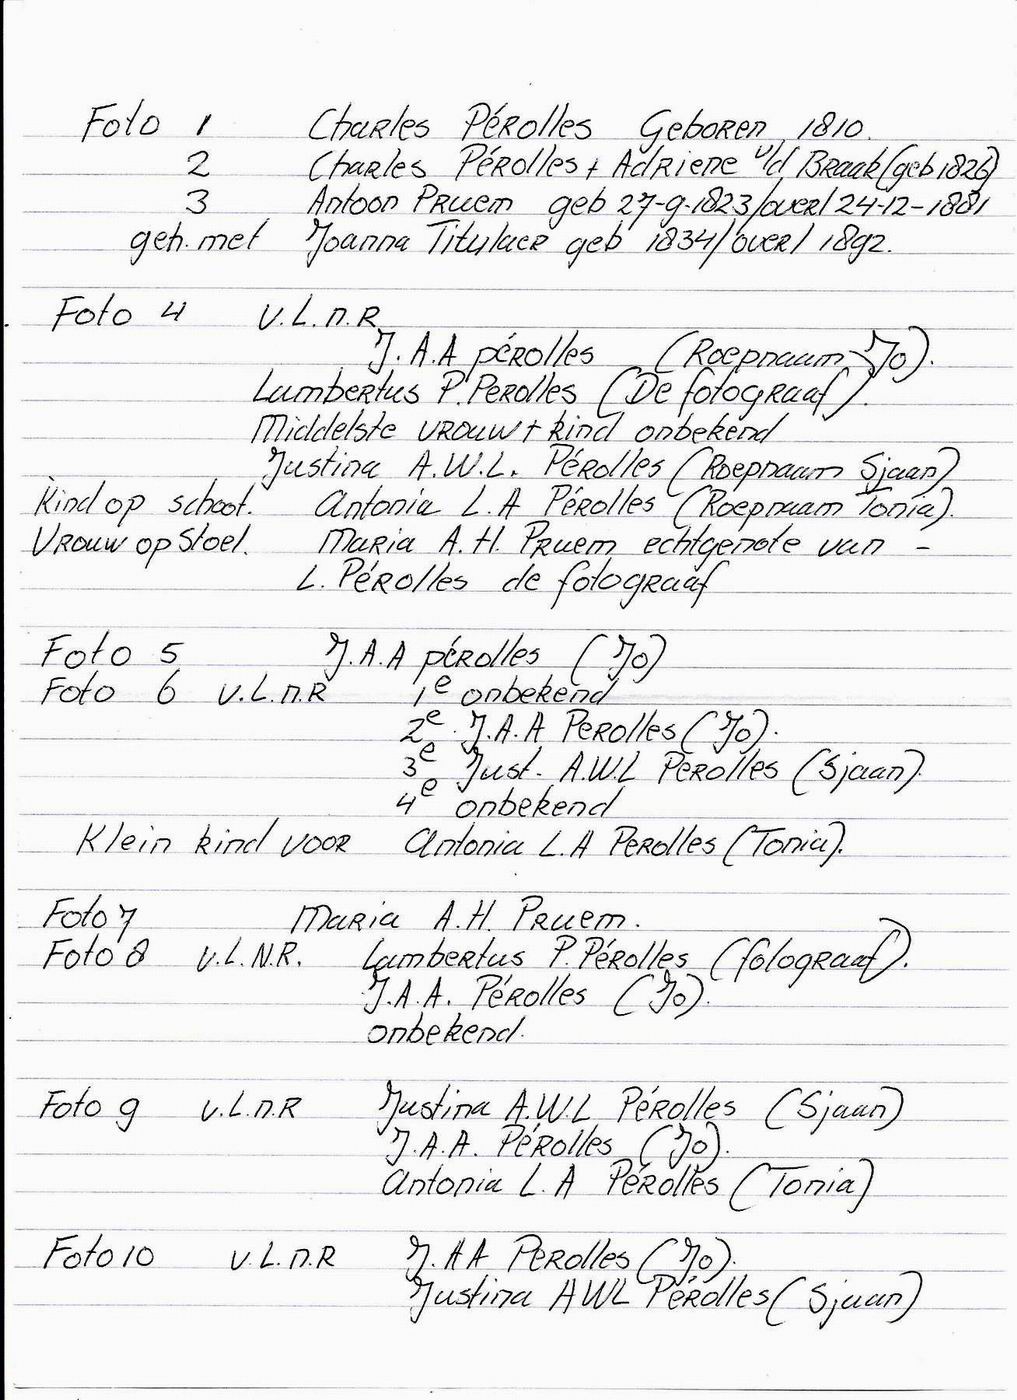 Foto 1 Charles Pérolles Geboren 1810.
2 Charles Pérolles + Adriene v/d Braak (geb 1826)
3 Antoon Pruem geb 27-9-1823/overl 24-12-1881
geh. met Joanna Titulaer geb 1834/overl 1892.
Foto 4 v.L.n.R
J.A.A pérolles (Roepnaam Jo).
Lambertus P. Perolles (De fotograaf).
Middelste vrouw + kind onbekend
Justina A.W.L. Pérolles (Roepnaam Sjaan)
kind op schoot. Antonia L.A Pérolles (Roepnaam Tonia).
Vrouw op Stoel. Maria A.H. Pruem echtgenote van -
L. Pérolles de fotograaf
Foto 5 J.A.A pérolles (Jo)
Foto 6 v.L.n.R 1e onbekend
2e J.A.A Perolles (Jo).
3e Just. A.W.L Perolles (Sjaan).
4e onbekend
Klein kind voor Antonia L.A Perolles (Tonia).
Foto 7 Maria A.H. Pruem.
Foto 8 v.L.N.R. Lambertus P. Pérolles (fotograaf).
J.A.A. Pérolles (Jo).
onbekend.
Foto 9 v.L.n.R Justina A.W.L Pérolles (Sjaan)
J.A.A. Pérolles (Jo).
Antonia L.A Pérolles (Tonia)
Foto 10 v.L.n.R J.AA Perolles (Jo).
Justina AWL Pérolles (Sjaan)